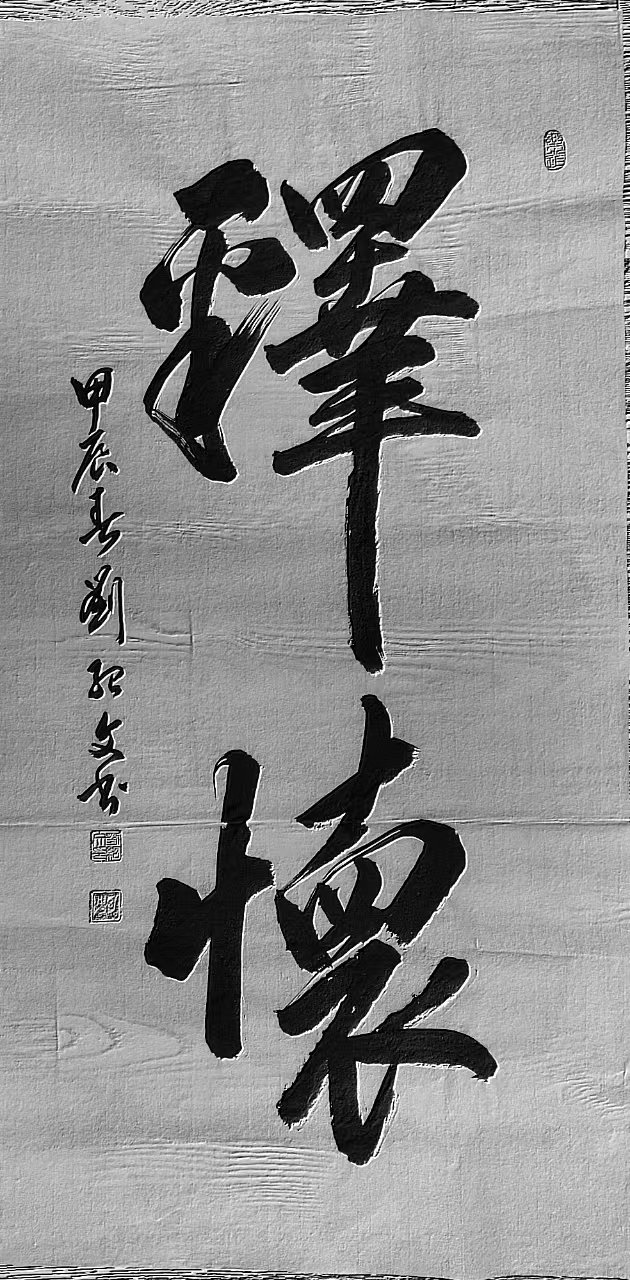 釋懷
甲辰春劉紹文書